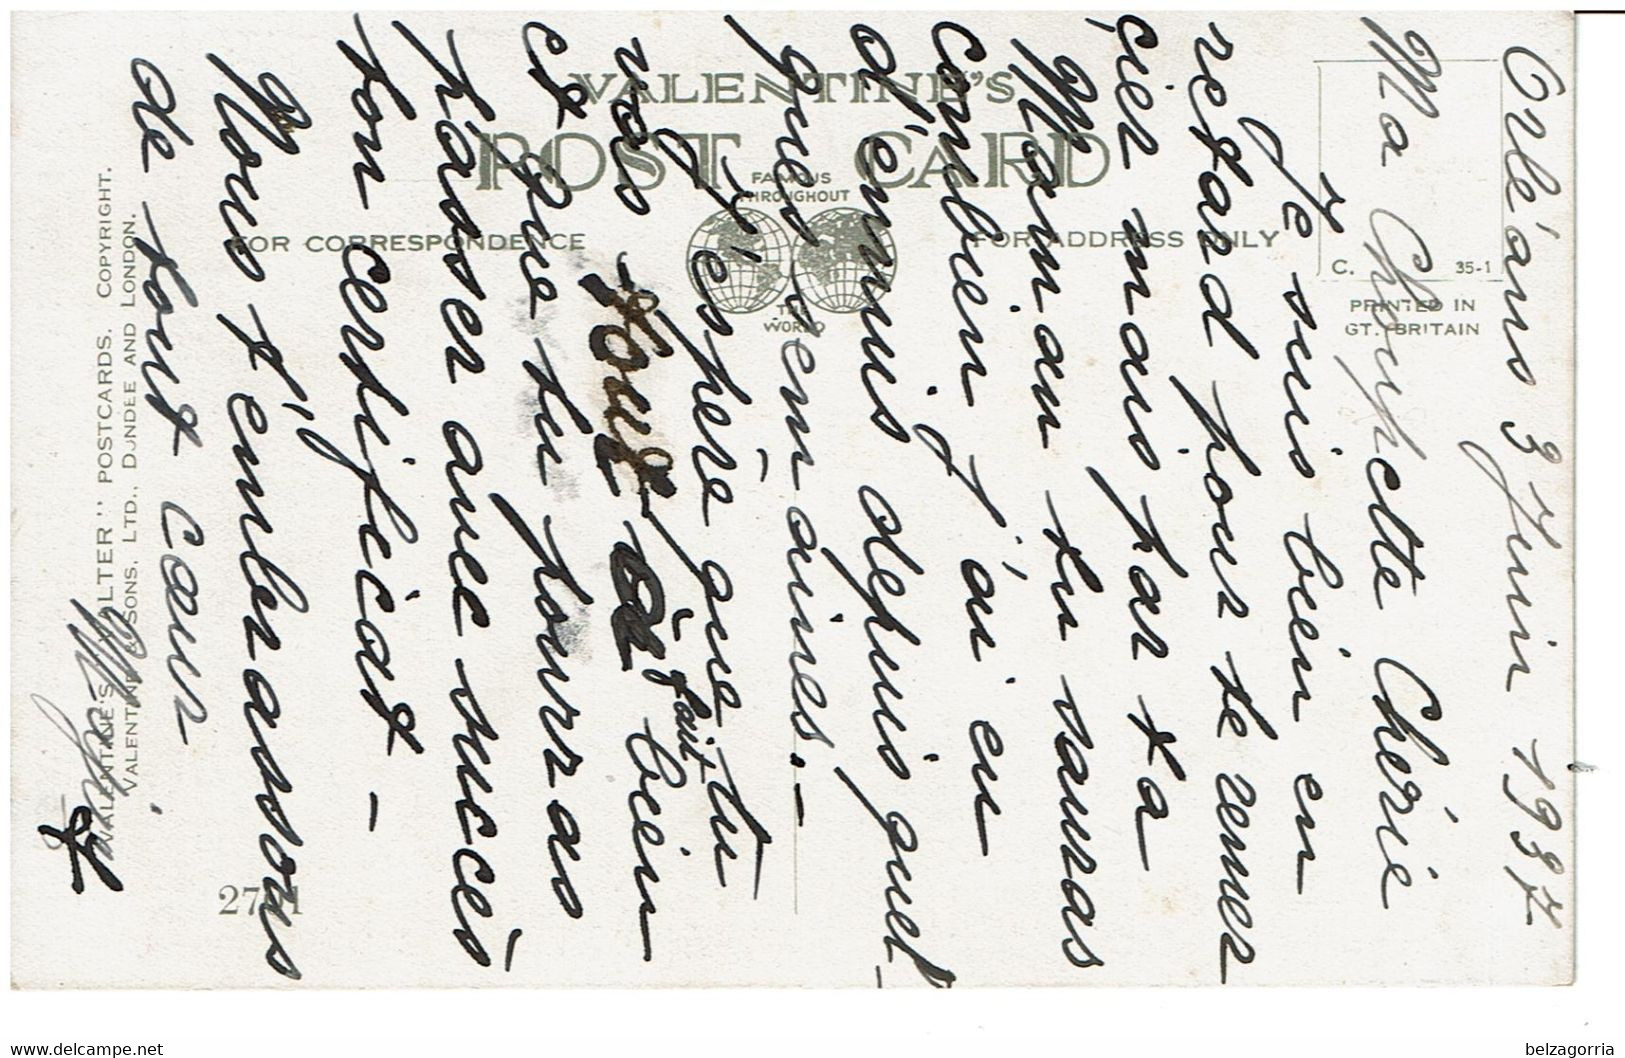 Orlé'ans 3 Juin 1937
Ma Choupette Chérie
Je suis bien en
retard pour te remer
çier mais par ta
Maman tu sauras
combien j'ai eu
d'ennuis depuis quel-
ques semaines.-
J'éspère que tu
vas tout à fait bien
et que tu pourras
passer avec succès
ton certificat -
Nous t'embrassons
de tout cœur
VALENTINE'S
POST CARD
FAMOUS
THROUGHOUT
THE
WORLD
FOR CORRESPONDENCE
FOR ADDRESS ONLY
C. 35-1
PRINTED IN
GT. BRITAIN
VALENTINE'S "VALTER" POSTCARDS. COPYRIGHT.
VALENTINE & SONS. LTD., DUNDEE AND LONDON.
www.delcampe.net
belzagorria